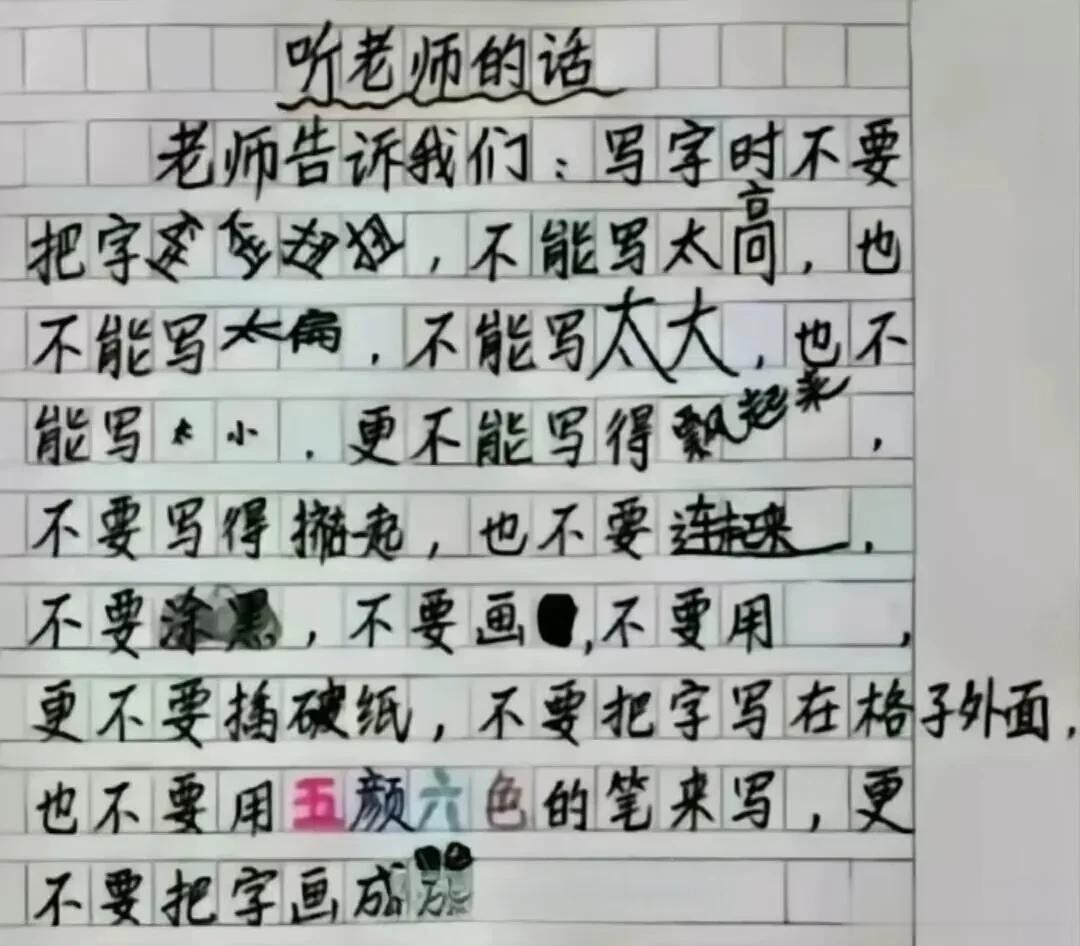 听老师的话
老师告诉我们：写字时不要
把字歪歪扭扭，不能写太高，也
不能写太扁，不能写太大，也不
能写太小，更不能写得飘起来，
不要写得挤在一起，也不要连起来，
不要涂黑，不要画，不要用，
更不要插破纸，不要把字写在格子外面，
也不要用五颜六色的笔来写，更
不要把字画成